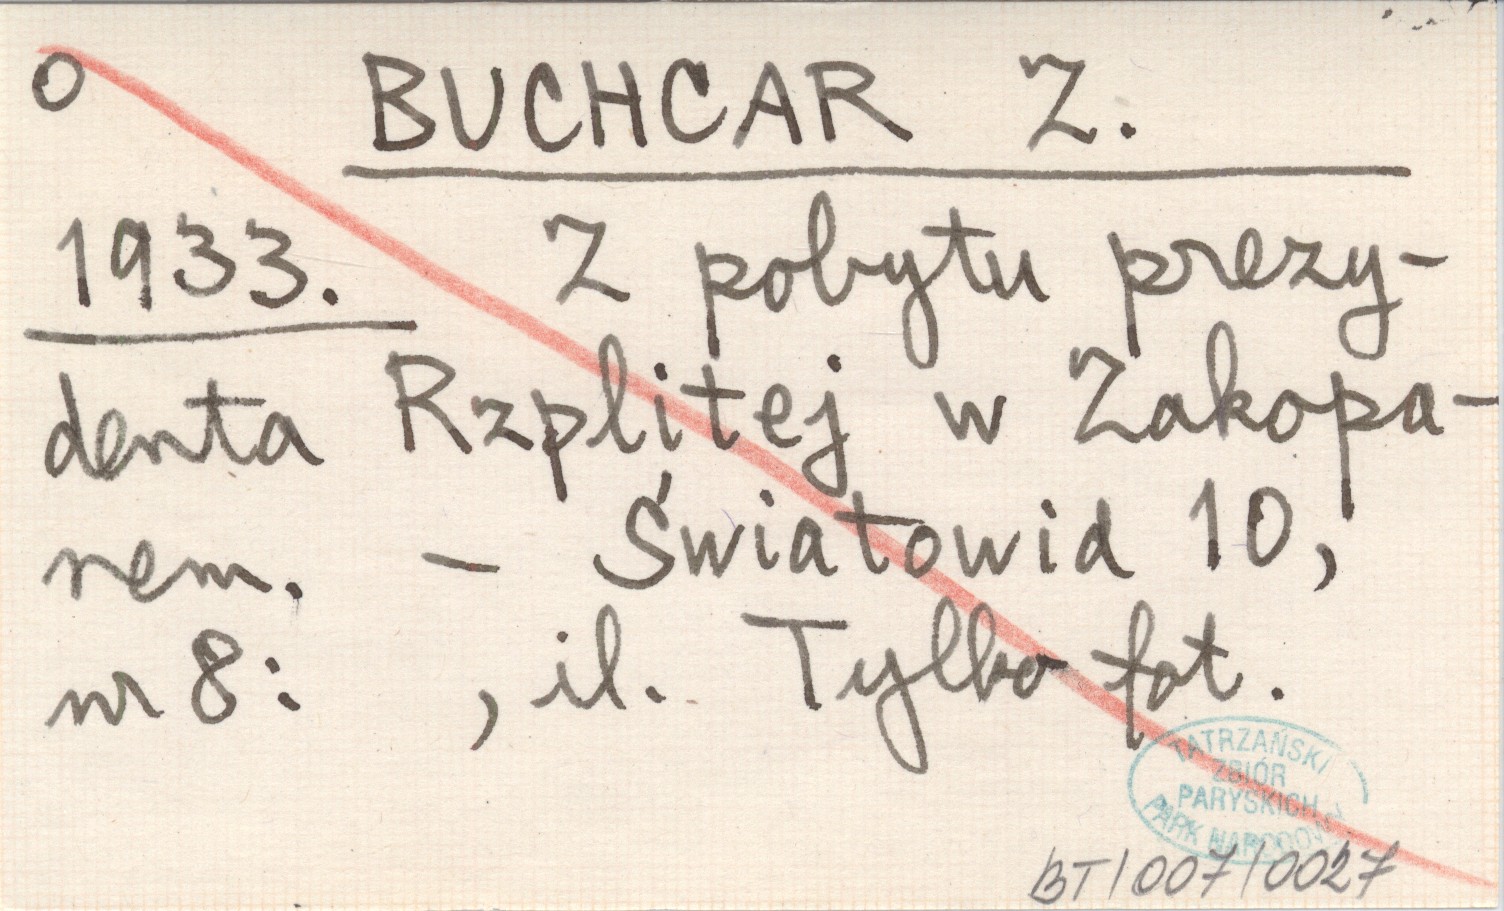 O BUCHCAR Z.
1933. Z pobytu prezy-
denta Rzplitej w Zakopa-
nem. - Światowid 10,
nr 8: , il. Tylko fot.
TATRZAŃSKI
ZBIÓR
PARYSKICH
PARK NARODOWY
BT/007/0027